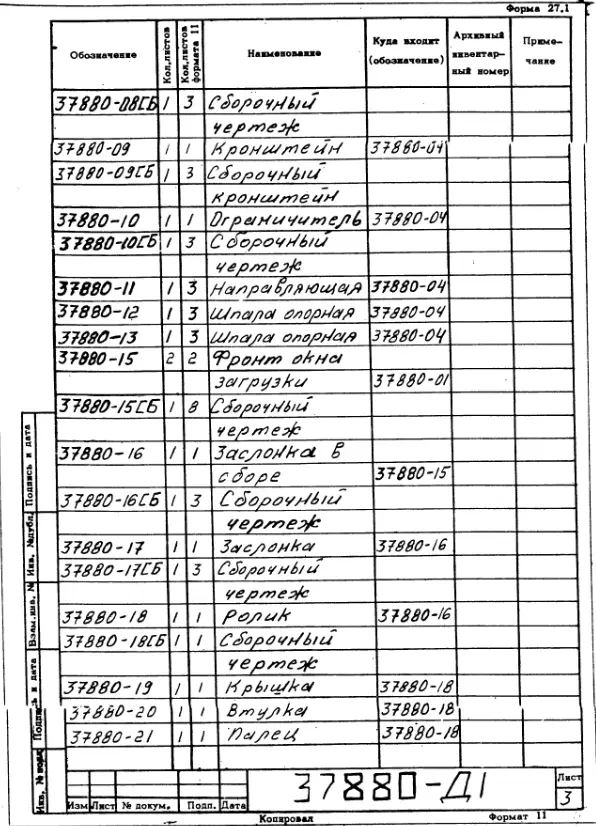 Форма 27.1
Обозначение Кол.листов Кол.листов формата 11 Наименование Куда входит (обозначение) Архивный инвентарный номер Примечание
37880-08СБ 1 3 Сборочный
чертеж
37880-09 1 1 Кронштейн 37880-04
37880-09СБ 1 3 Сборочный
кронштейн
37880-10 1 1 Ограничитель 37880-04
37880-10СБ 1 3 Сборочный
чертеж
37880-11 1 3 Направляющая 37880-04
37880-12 1 3 Шпала опорная 37880-04
37880-13 1 3 Шпала опорная 37880-04
37880-15 2 2 Фронт окна
загрузки 37880-01
37880-15СБ 1 8 Сборочный
чертеж
37880-16 1 1 Заслонка в
сборе 37880-15
37880-16СБ 1 3 Сборочный
чертеж
37880-17 1 1 Заслонка 37880-16
37880-17СБ 1 3 Сборочный
чертеж
37880-18 1 1 Ролик 37880-16
37880-18СБ 1 1 Сборочный
чертеж
37880-19 1 1 Крышка 37880-18
37880-20 1 1 Втулка 37880-18
37880-21 1 1 Палец 37880-18
Подпись и дата
Инв. №дубл.
Взам.инв. №
Подпись и дата
Инв. № подл.
Изм Лист № докум. Подп. Дата
37880-Д1
Лист
3
Копировал Формат 11